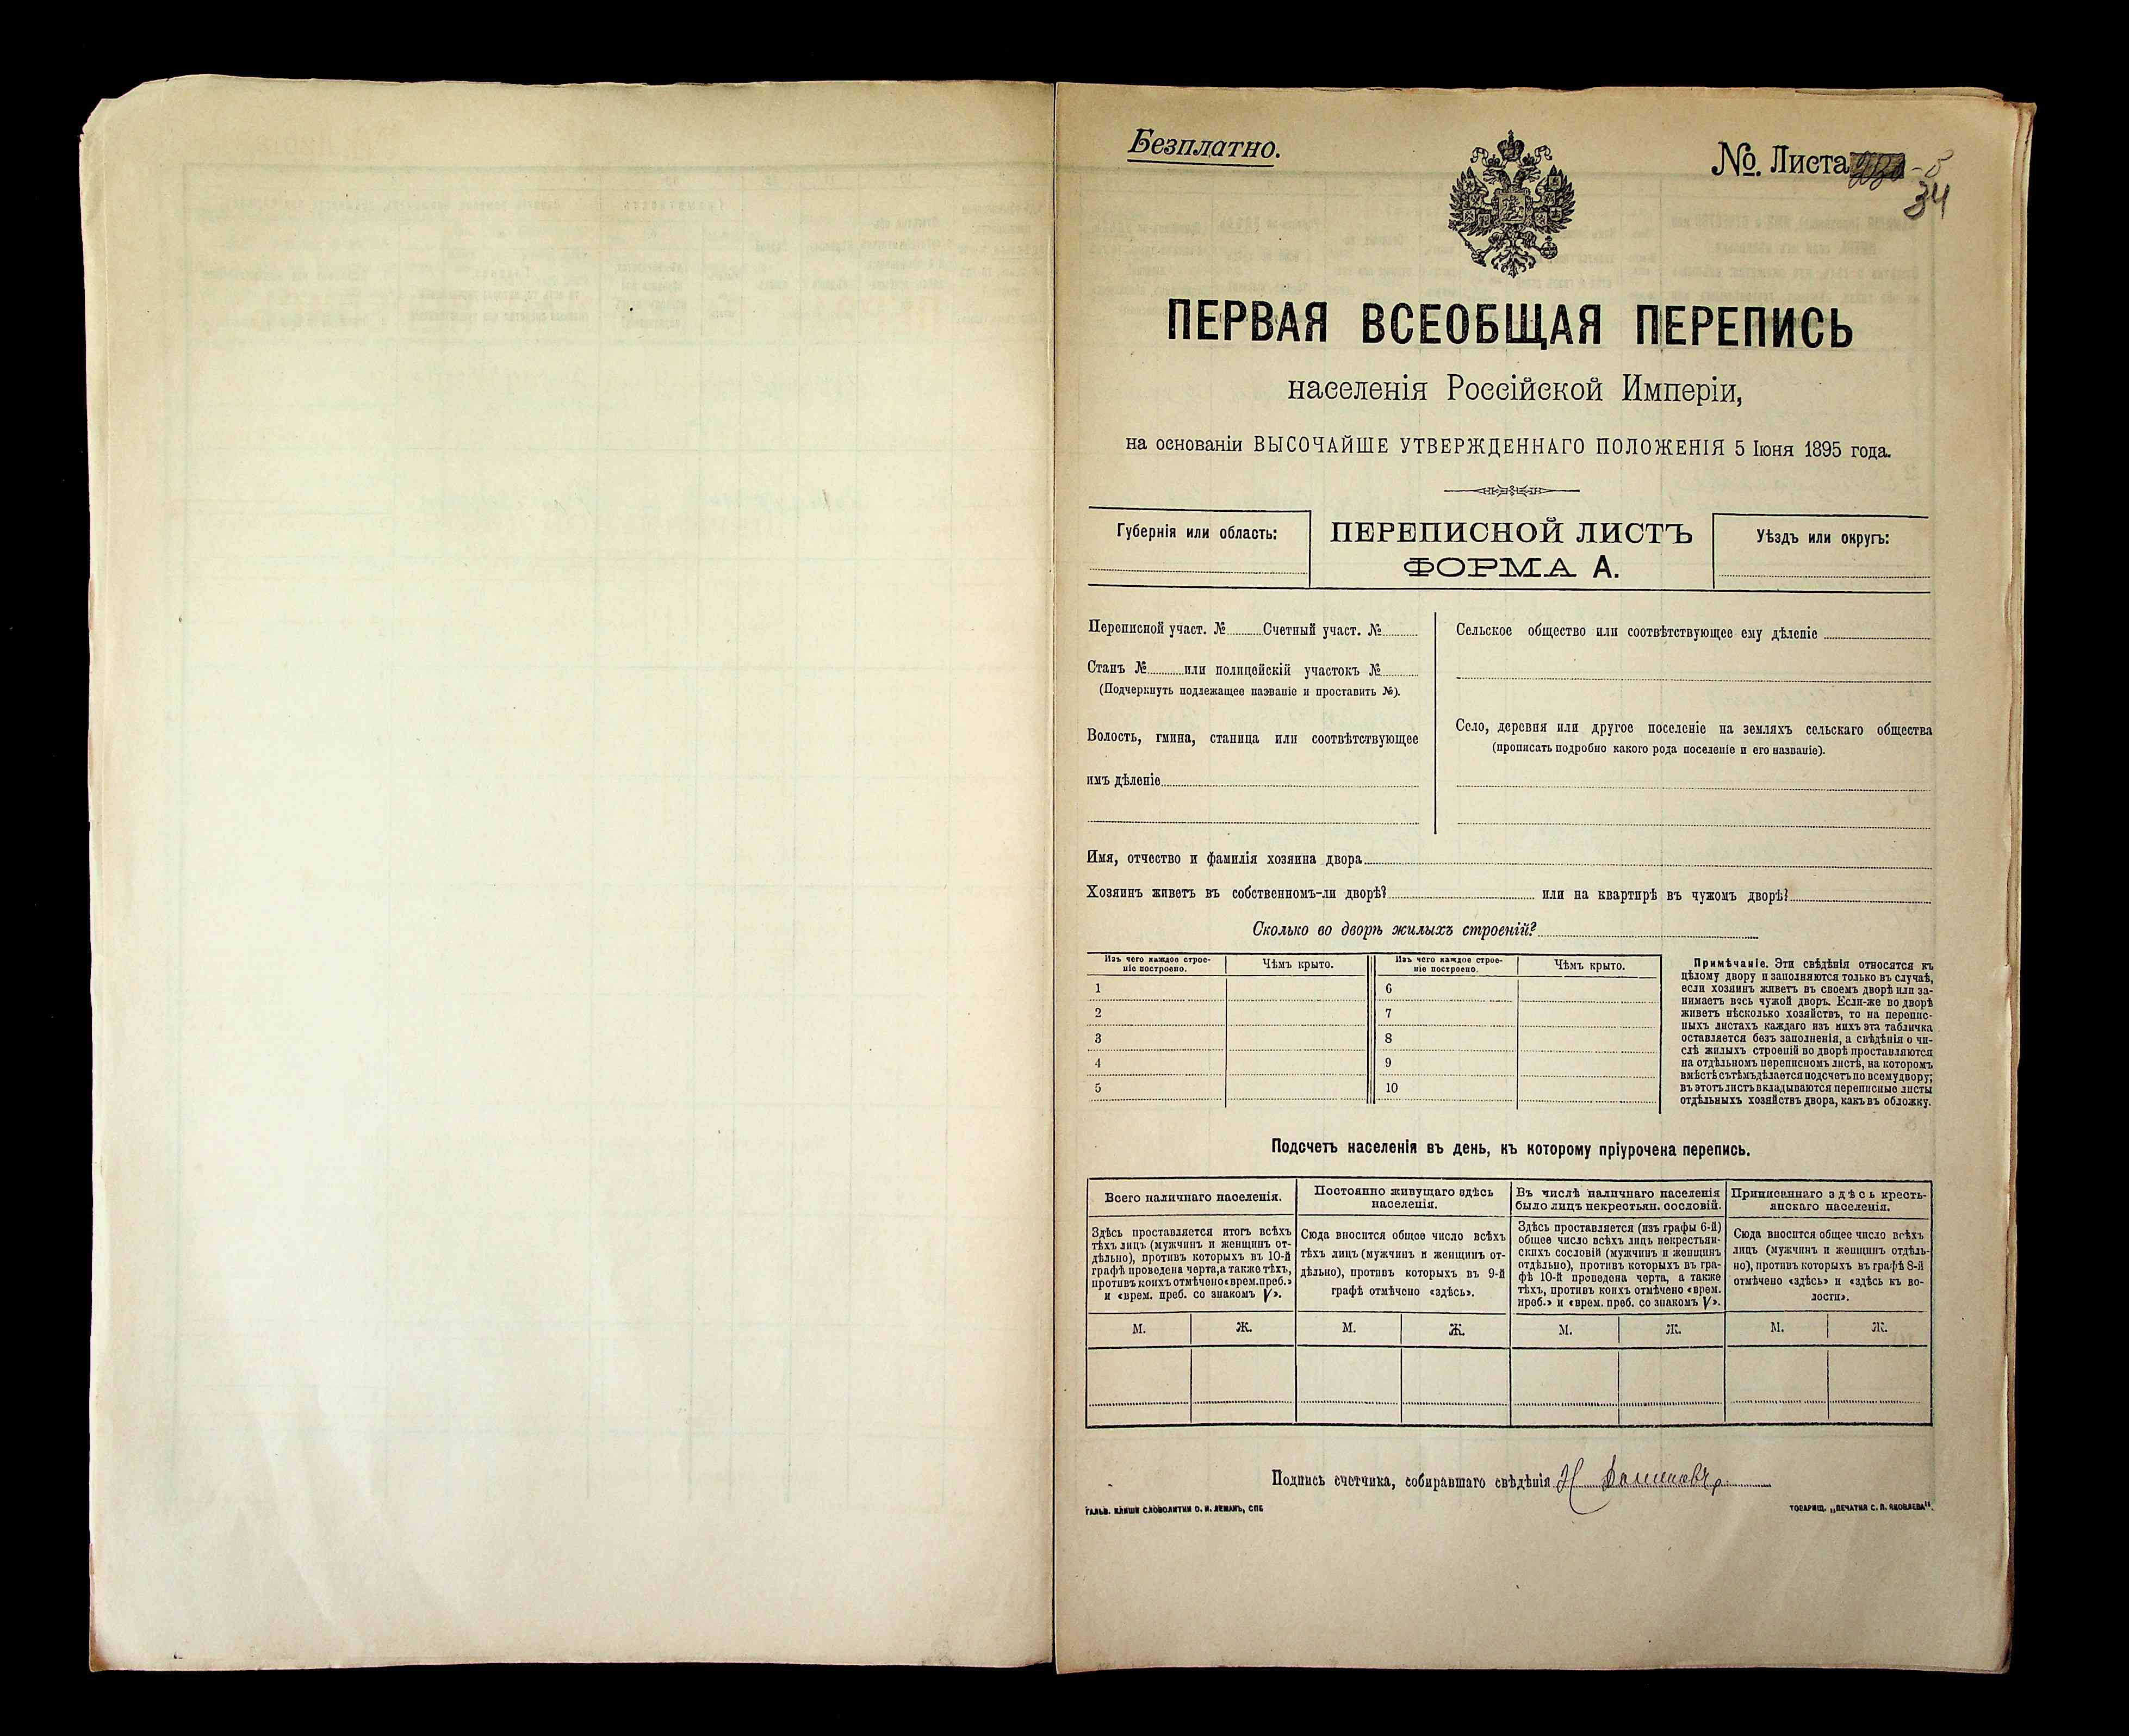 Безплатно.
№. Листа
34
ПЕРВАЯ ВСЕОБЩАЯ ПЕРЕПИСЬ
населенія Россійской Имперіи,
на основаніи ВЫСОЧАЙШЕ УТВЕРЖДЕННАГО ПОЛОЖЕНІЯ 5 Іюня 1895 года.
Губернія или область:
ПЕРЕПИСНОЙ ЛИСТЪ
ФОРМА А.
Уѣздъ или округъ:
Переписной участ. № Счетный участ. №
Станъ № или полицейскій участокъ №
(Подчеркнуть подлежащее названіе и проставить №).
Волость, гмина, станица или соотвѣтствующее
имъ дѣленіе
Сельское общество или соотвѣтствующее ему дѣленіе
Село, деревня или другое поселеніе на земляхъ сельскаго общества
(прописать подробно какого рода поселеніе и его названіе).
Имя, отчество и фамилія хозяина двора
Хозяинъ живетъ въ собственномъ-ли дворѣ? или на квартирѣ въ чужомъ дворѣ?
Сколько во дворѣ жилыхъ строеній?
Изъ чего каждое строе-
ніе построено.
Чѣмъ крыто.
Изъ чего каждое строе-
ніе построено.
Чѣмъ крыто.
1
2
3
4
5
6
7
8
9
10
Примѣчаніе. Эти свѣдѣнія относятся къ
цѣлому двору и заполняются только въ случаѣ,
если хозяинъ живетъ въ своемъ дворѣ или за-
нимаетъ весь чужой дворъ. Если-же во дворѣ
живетъ нѣсколько хозяйствъ, то на перепис-
ныхъ листахъ каждаго изъ нихъ эта табличка
оставляется безъ заполненія, а свѣдѣнія о чи-
слѣ жилыхъ строеній во дворѣ проставляются
на отдѣльномъ переписномъ листѣ, на которомъ
вмѣстѣ съ тѣмъ дѣлается подсчетъ по всему двору;
въ этотъ листъ вкладываются переписные листы
отдѣльныхъ хозяйствъ двора, какъ въ обложку.
Подсчетъ населенія въ день, къ которому пріурочена перепись.
Всего наличнаго населенія.
Здѣсь проставляется итогъ всѣхъ
тѣхъ лицъ (мужчинъ и женщинъ от-
дѣльно), противъ которыхъ въ 10-й
графѣ проведена черта, а также тѣхъ,
противъ коихъ отмѣчено «врем. преб.»
и «врем. преб. со знакомъ V».
М. Ж.
Постоянно живущаго здѣсь
населенія.
Сюда вносится общее число всѣхъ
тѣхъ лицъ (мужчинъ и женщинъ от-
дѣльно), противъ которыхъ въ 9-й
графѣ отмѣчено «здѣсь».
М. Ж.
Въ числѣ наличнаго населенія
было лицъ некрестьян. сословій.
Здѣсь проставляется (изъ графы 6-й)
общее число всѣхъ лицъ некрестьян-
скихъ сословій (мужчинъ и женщинъ
отдѣльно), противъ которыхъ въ гра-
фѣ 10-й проведена черта, а также
тѣхъ, противъ коихъ отмѣчено «врем.
преб.» и «врем. преб. со знакомъ V».
М. Ж.
Приписаннаго здѣсь кресть-
янскаго населенія.
Сюда вносится общее число всѣхъ
лицъ (мужчинъ и женщинъ отдѣль-
но), противъ которыхъ въ графѣ 8-й
отмѣчено «здѣсь» и «здѣсь къ во-
лости».
М. Ж.
Подпись счетчика, собиравшаго свѣдѣнія
ГАЛЬВ. КЛИШЕ СЛОВОЛИТНИ О. И. ЛЕМАНЪ, СПБ
ТОВАРИЩ. „ПЕЧАТНЯ С. П. ЯКОВЛЕВА".